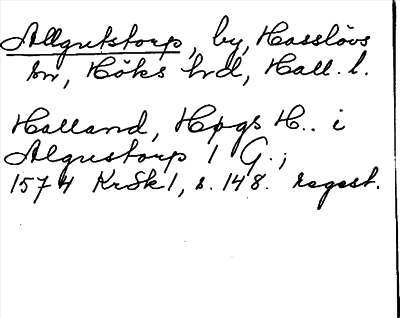 Allgutstorp, by, Hasslövs
sn, Höks hrd, Hall. l.
Halland, Hpgs H.. i
Algustorp 1 G.;
1574 KrSk1, s. 148. regest.